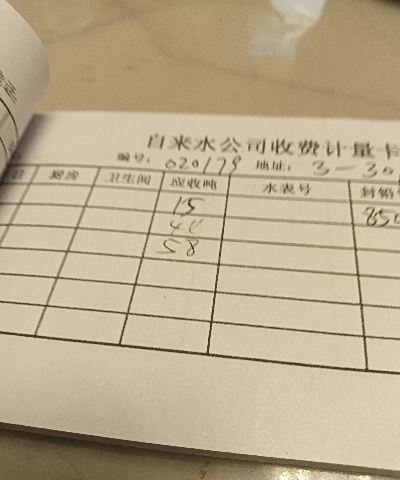 自来水公司收费计量卡
编号: 020179 地址: 3-30
厨房 卫生间 应收吨 水表号 封铅
15 850
58